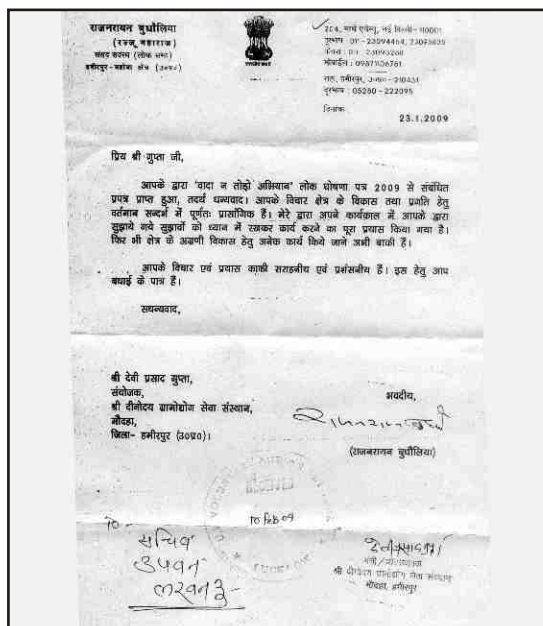 राजनरायन बुधौलिया
(रज्जू महाराज)
संसद सदस्य (लोक सभा)
हमीरपुर-महोबा क्षेत्र (उ०प्र०)
204, नार्थ एवेन्यू, नई दिल्ली - 110001
दूरभाष : 011 - 23094464,
मोबाईल :
राठ, हमीरपुर, उ०प्र०- 210431
दूरभाष : 05280 - 222095
दिनांक
23.1.2009
प्रिय श्री गुप्ता जी,
आपके द्वारा 'वादा न तोड़ो अभियान' लोक घोषणा पत्र 2009 से संबंधित
प्रपत्र प्राप्त हुआ, तदर्थ धन्यवाद। आपके विचार क्षेत्र के विकास तथा प्रगति हेतु
वर्तमान सन्दर्भ में पूर्णतः प्रासंगिक हैं। मेरे द्वारा अपने कार्यकाल में आपके द्वारा
सुझाये गये सुझावों को ध्यान में रखकर कार्य करने का पूरा प्रयास किया गया है।
फिर भी क्षेत्र के अग्रणी विकास हेतु अनेक कार्य किये जाने अभी बाकी हैं।
आपके विचार एवं प्रयास काफी सराहनीय एवं प्रशंसनीय हैं। इस हेतु आप
बधाई के पात्र हैं।
सधन्यवाद,
श्री देवी प्रसाद गुप्ता,
संयोजक,
श्री दीनोदय ग्रामोद्योग सेवा संस्थान,
मौदहा,
जिला- हमीरपुर (उ०प्र०)।
भवदीय,
(राजनरायन बुधौलिया)
10 Feb 09
To -
सचिव
उपवन
लखनऊ
श्री दीनोदय ग्रामोद्योग सेवा संस्थान
मौदहा, हमीरपुर